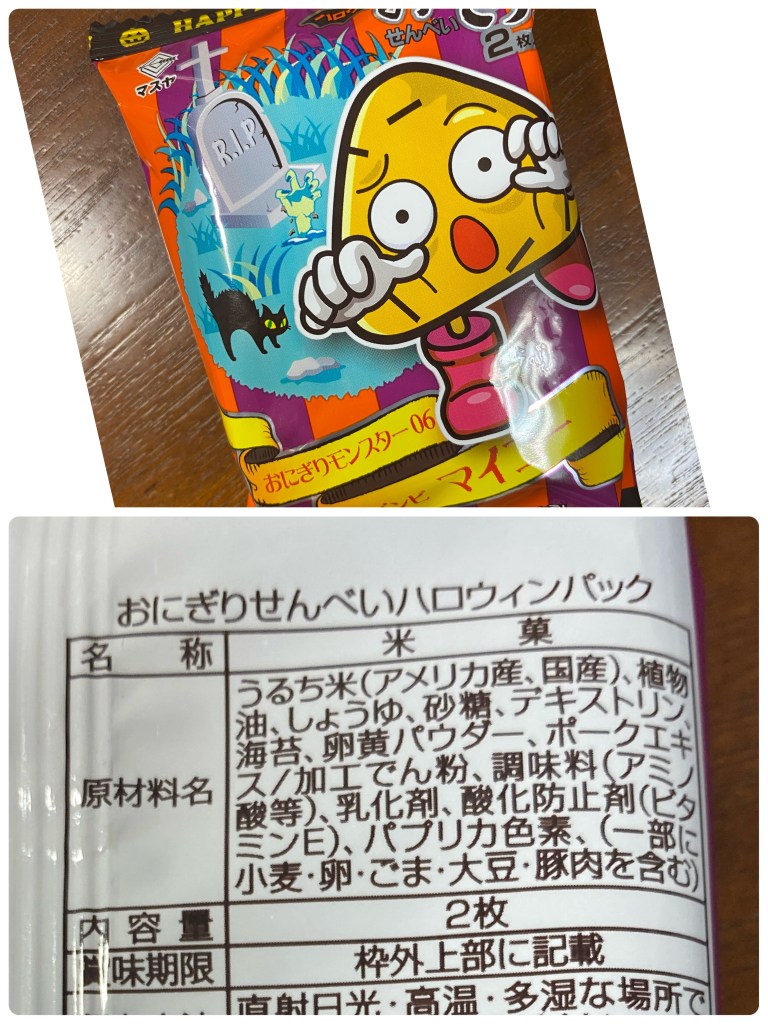 HAPPY
マスヤ
せんべい
2枚
R.I.P
おにぎりモンスター06
おにぎりせんべいハロウィンパック
名 称 米 菓
原材料名
うるち米(アメリカ産、国産)、植物
油、しょうゆ、砂糖、デキストリン、
海苔、卵黄パウダー、ポークエキ
ス/加工でん粉、調味料(アミノ
酸等)、乳化剤、酸化防止剤(ビタ
ミンE)、パプリカ色素、(一部に
小麦・卵・ごま・大豆・豚肉を含む)
内容量 2枚
賞味期限 枠外上部に記載
直射日光・高温・多湿な場所で